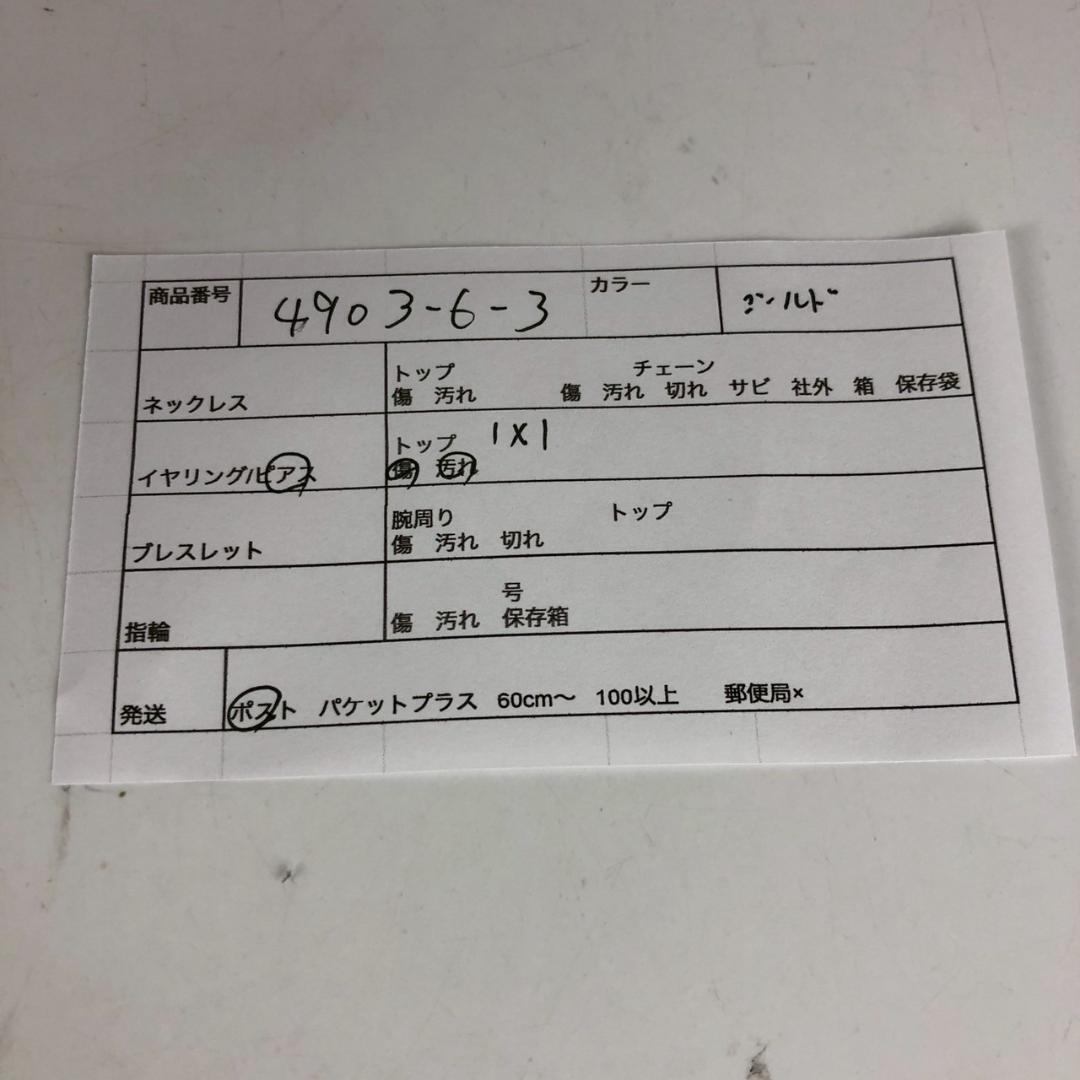 商品番号 4903-6-3 カラー ゴールド
トップ チェーン
ネックレス 傷 汚れ 傷 汚れ 切れ サビ 社外 箱 保存袋
トップ 1×1
イヤリング/ピアス 傷 汚れ
腕周り トップ
ブレスレット 傷 汚れ 切れ
号
指輪 傷 汚れ 保存箱
発送 ポスト パケットプラス 60cm〜 100以上 郵便局×